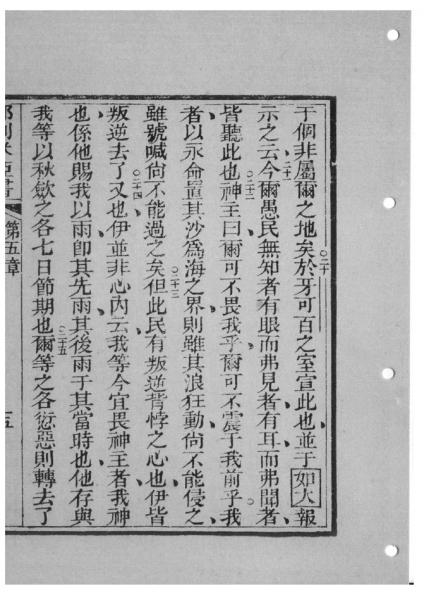 于個非屬爾之地矣〇二十於牙可百之室宣此也並于如大報
示之云二十一今爾愚民無知者有眼而弗見者有耳而弗聞者
皆聽此也〇二十二神主曰爾可不畏我乎爾可不震于我前乎〇我
者以永命置其沙爲海之界則雖其浪狂動尙不能侵之
雖號喊尙不能過之矣〇二十三但此民有叛逆背悖之心也伊皆
叛逆去了〇二十四又也伊並非心內云我等今宜畏神主者我神
也係他賜我以雨卽其先雨其後雨于其當時也他存與
我等以秋斂之各七日節期也〇二十五爾等之各愆惡則轉去了
第五章